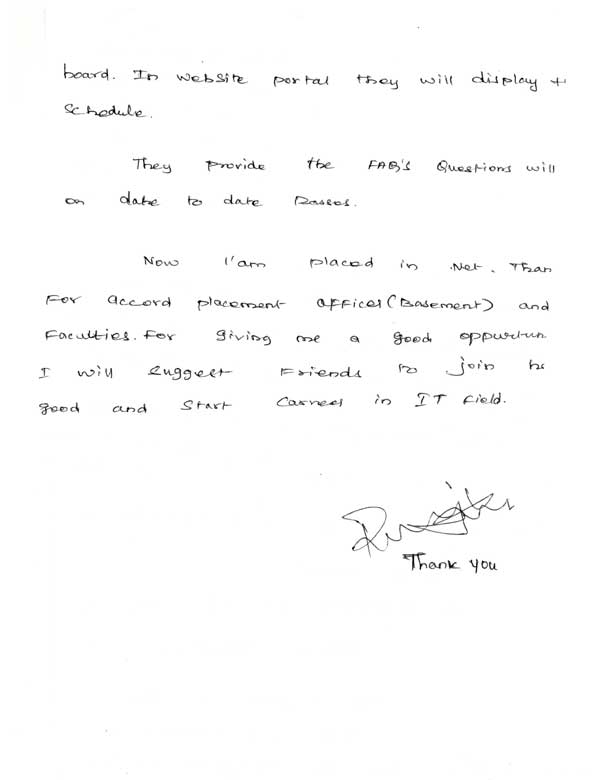 board. In website portal they will display t
Schedule.
They provide the FAQ's Questions will
on date to date
Now I'am placed in .Net. Than
For accord placement officer (Basement) and
Faculties. For giving me a good oppurtun
I will suggest Friends to join he
good and start Carreer in IT field.
Thank you